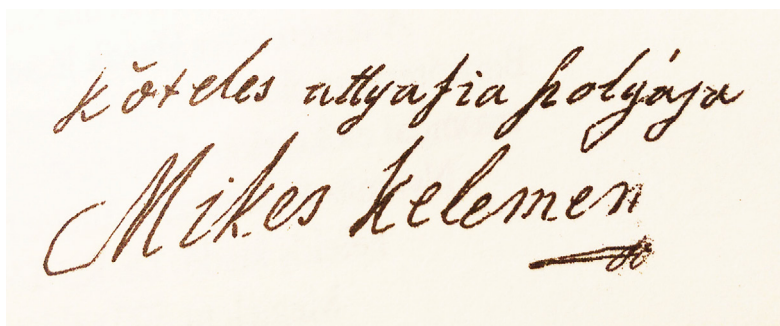 kőteles attyafia szolgája
Mikes Kelemen